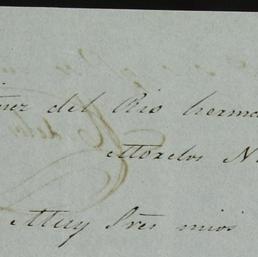 del Rio herma
Morelos N
Muy Sres mios